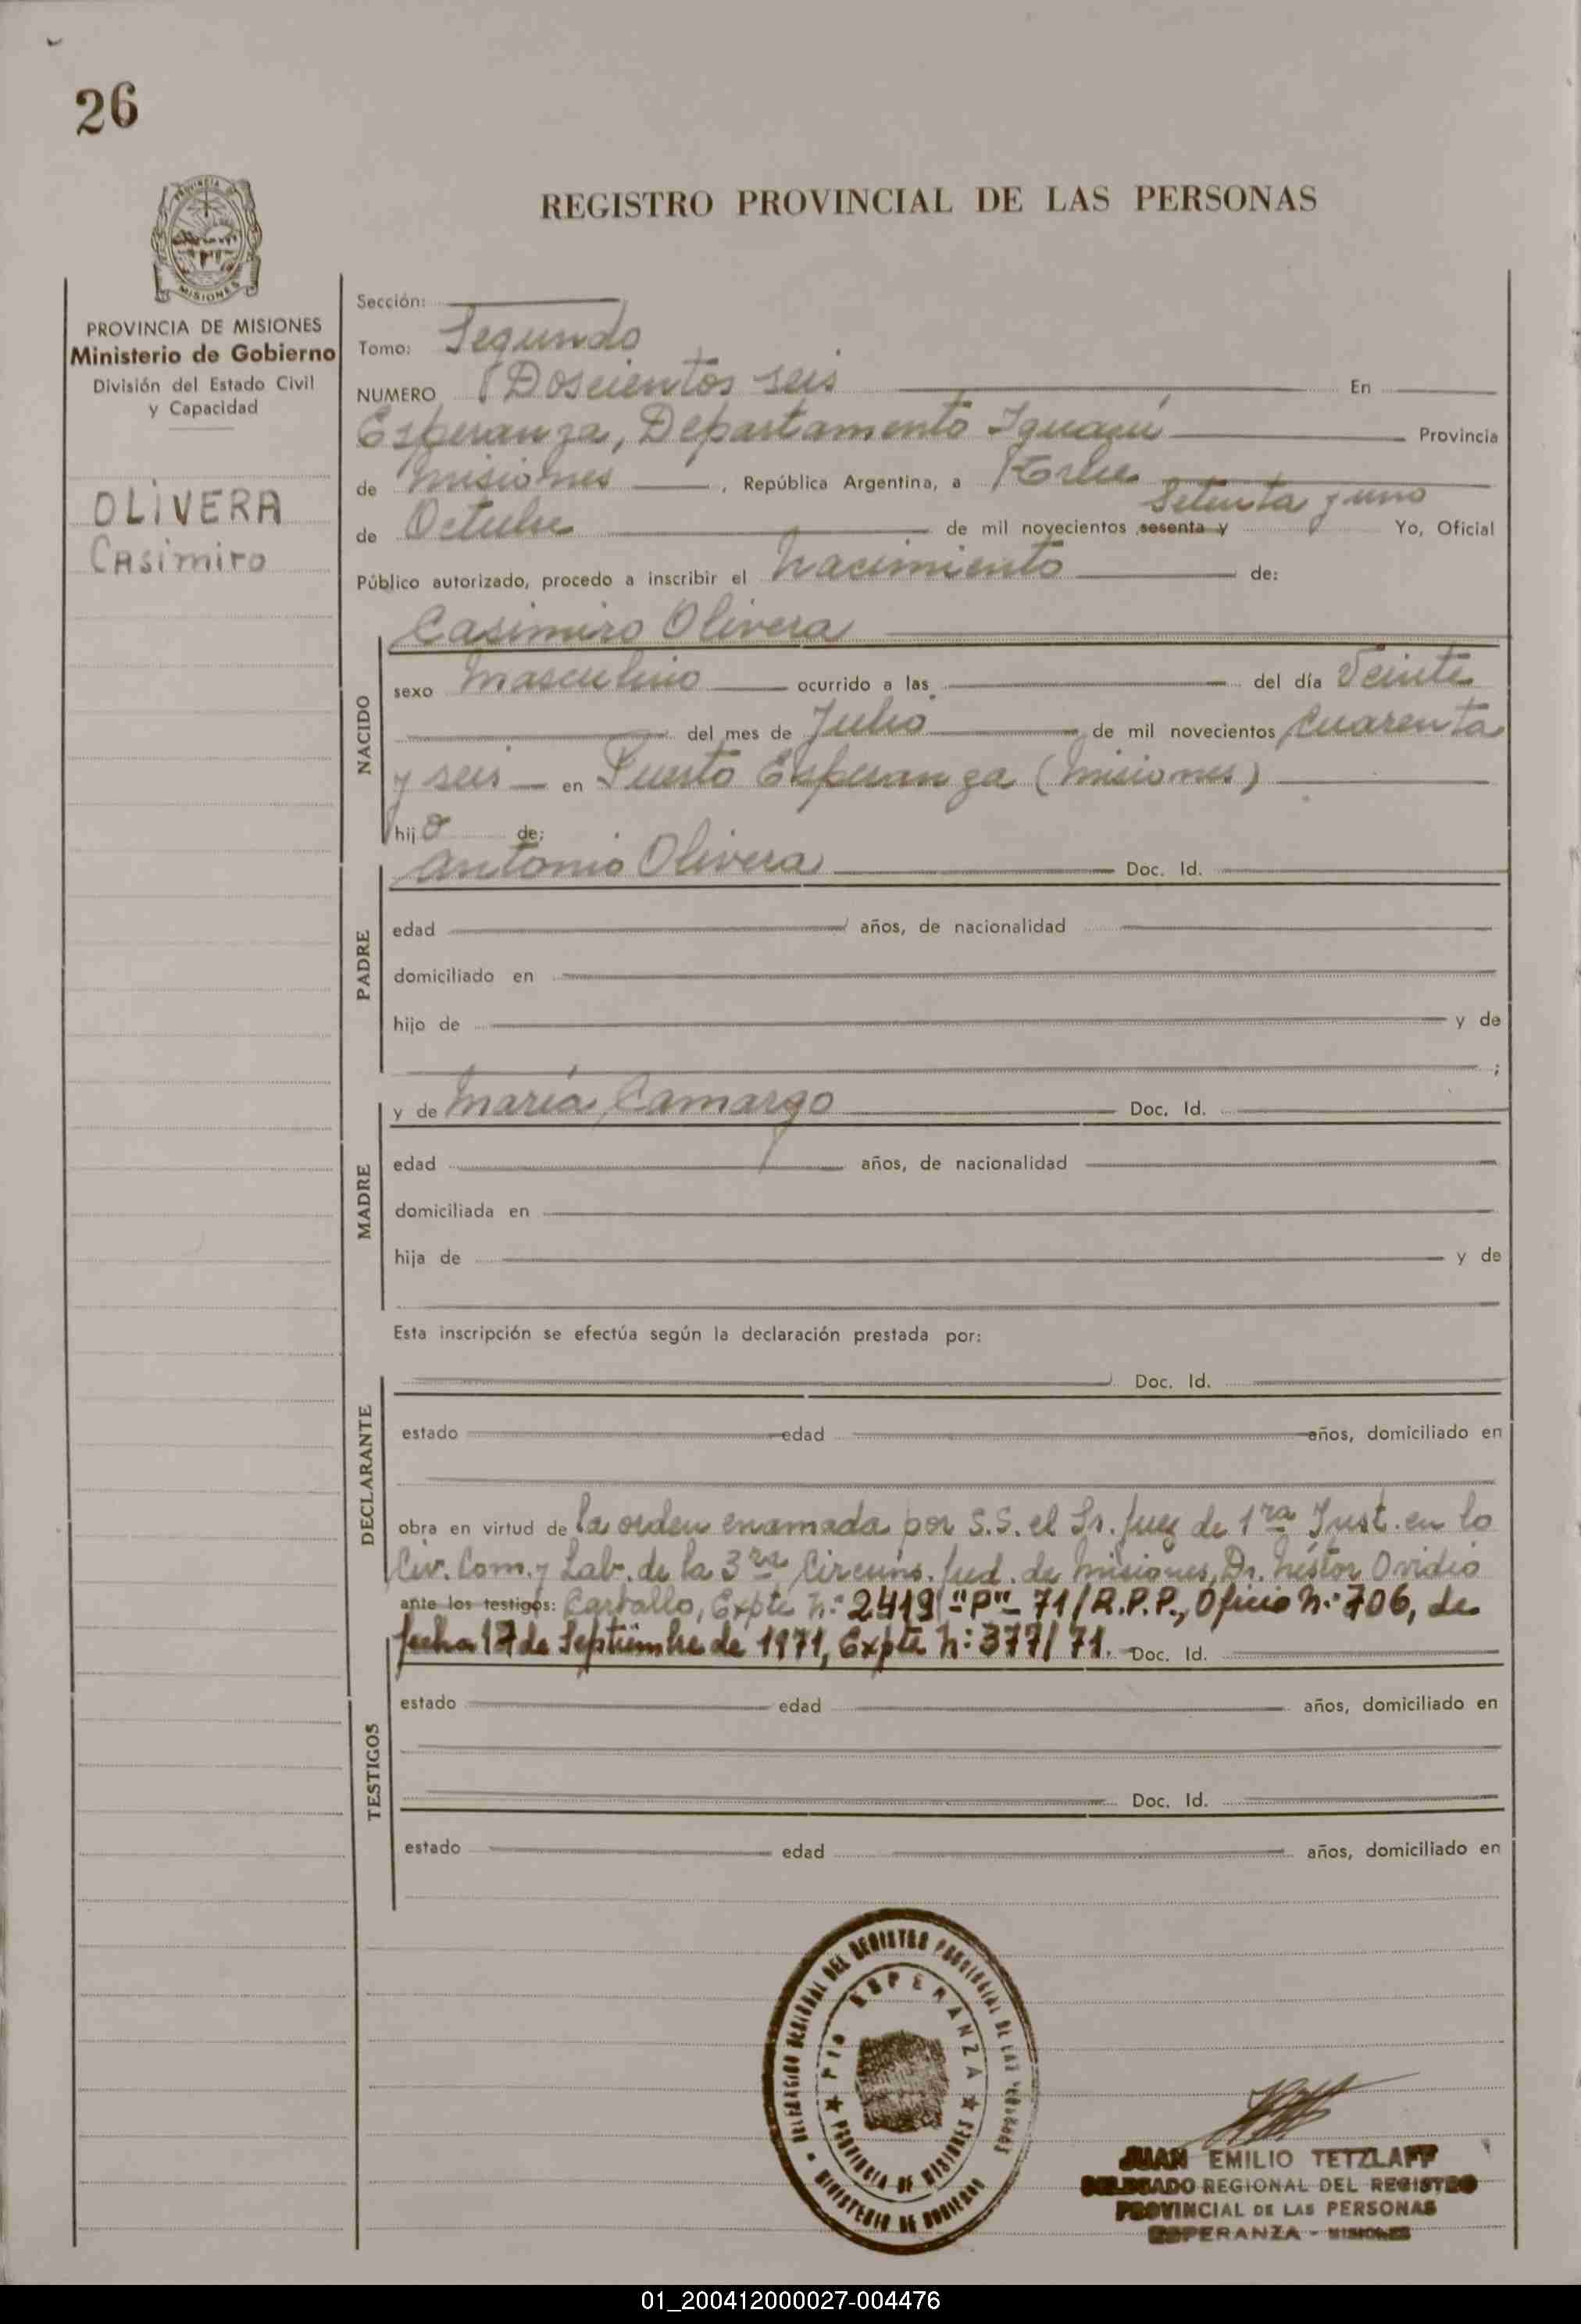 26
PROVINCIA DE
MISIONES
PROVINCIA DE MISIONES
Ministerio de Gobierno
División del Estado Civil
y Capacidad
OLIVERA
Casimiro
REGISTRO PROVINCIAL DE LAS PERSONAS
Sección:
Tomo: Segundo
NUMERO Doscientos seis En
Esperanza, Departamento Iguazú Provincia
de Misiones, República Argentina, a
Setenta y uno
de Octubre de mil novecientos sesenta y Yo, Oficial
Público autorizado, procedo a inscribir el nacimiento de:
Casimiro Olivera
NACIDO
sexo Masculino ocurrido a las del día Veinte
del mes de Julio de mil novecientos Cuarenta
y seis en Puerto Esperanza (Misiones)
hijo de:
PADRE
Antonio Olivera Doc. Id.
edad años, de nacionalidad
domiciliado en
hijo de y de
;
MADRE
y de María Camargo Doc. Id.
edad años, de nacionalidad
domiciliada en
hija de y de
Esta inscripción se efectúa según la declaración prestada por:
DECLARANTE
Doc. Id.
estado edad años, domiciliado en
obra en virtud de la orden enamada por S.S. el Sr. Juez de 1ra Inst. en lo
Civ. Com. y Lab. de la 3ra Circuns. Jud. de Misiones, Dr. Néstor Ovidio
ante los testigos: Carballo, Expte N: 2419 "P" 71/R.P.P., Oficio N: 706, de
fecha 17 de Septiembre de 1971, Expte N: 377/71. Doc. Id.
TESTIGOS
estado edad años, domiciliado en
Doc. Id.
estado edad años, domiciliado en
DELEGACION REGIONAL DEL REGISTRO PROVINCIAL DE LAS PERSONAS
PTO ESPERANZA
PROVINCIA DE MISIONES
MINISTERIO DE GOBIERNO
JUAN EMILIO TETZLAFF
DELEGADO REGIONAL DEL REGISTRO
PROVINCIAL DE LAS PERSONAS
ESPERANZA - MISIONES
01_200412000027-004476